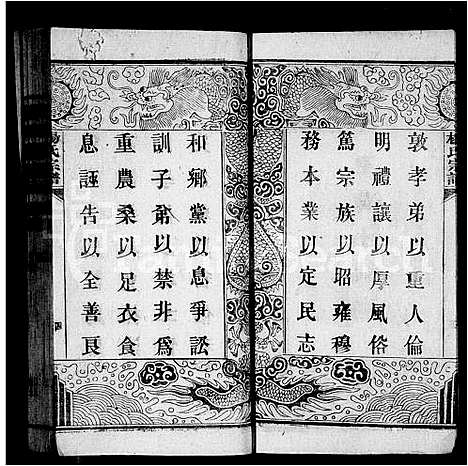 敦孝弟以重人倫
明禮讓以厚風俗
篤宗族以昭雍穆
務本業以定民志
和鄉黨以息爭訟
訓子弟以禁非為
重農桑以足衣食
息誣告以全善良
楊氏宗譜